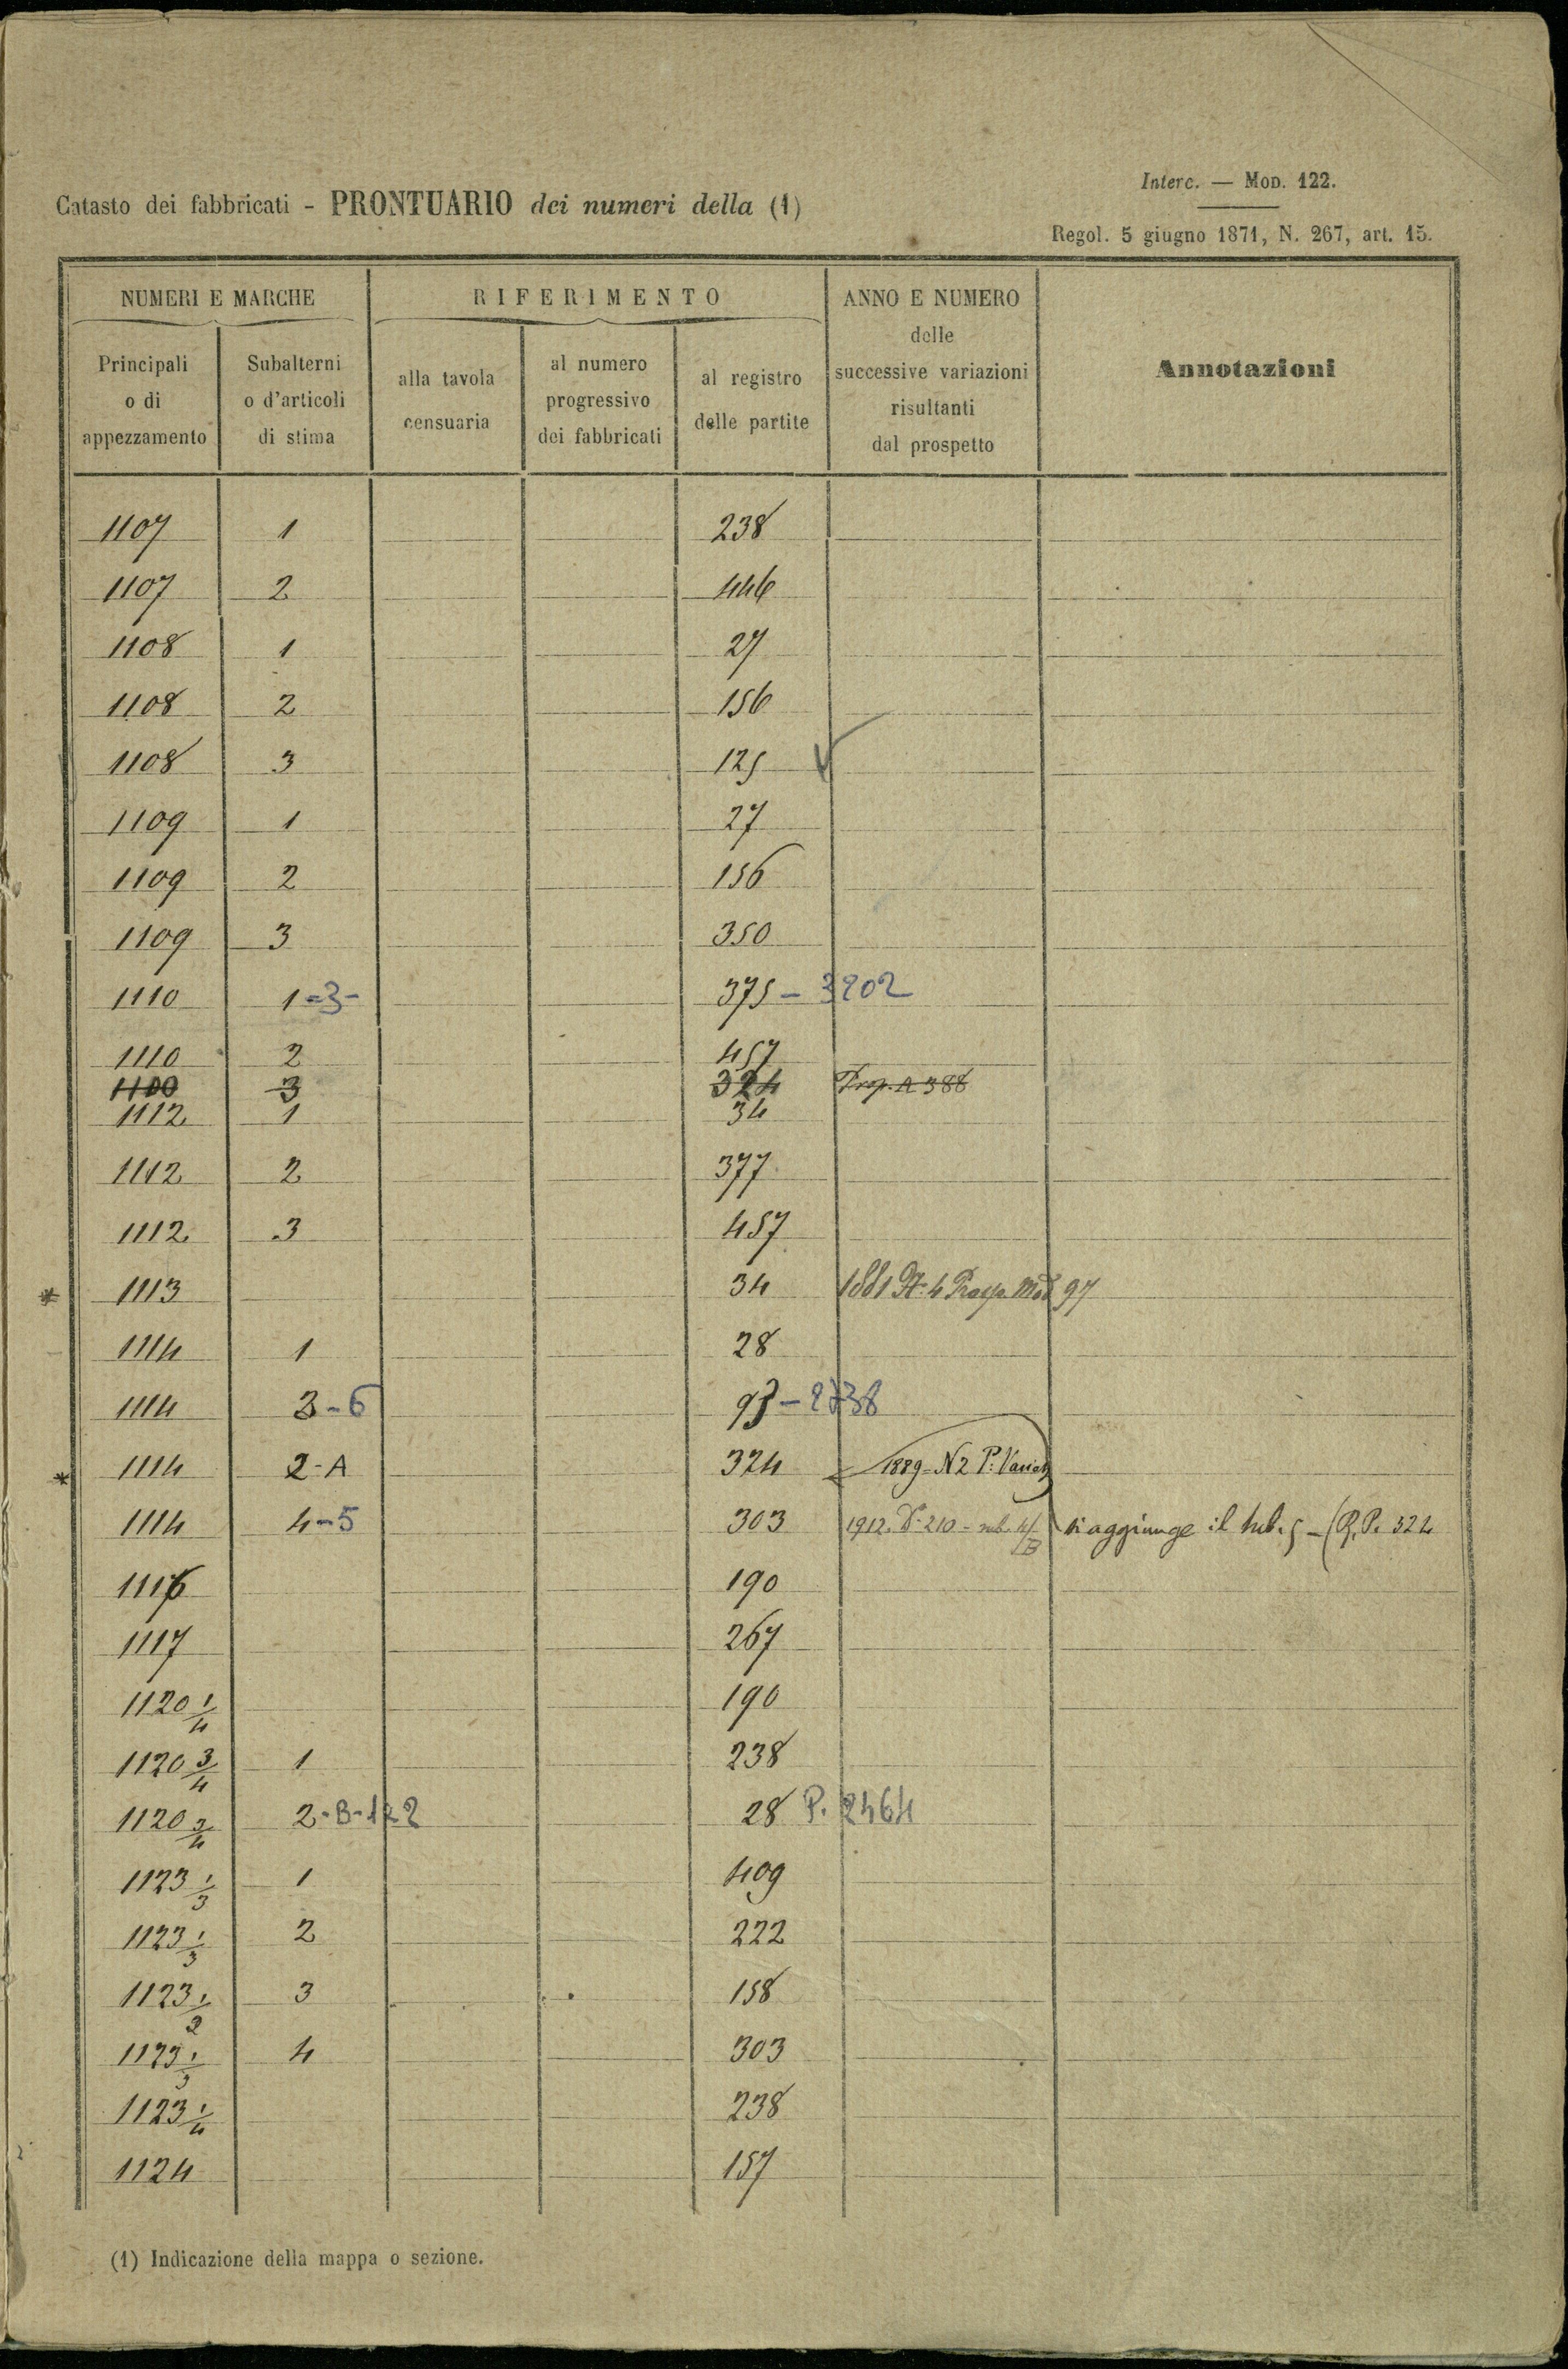 Interc. — Mod. 122.
Catasto dei fabbricati - PRONTUARIO dei numeri della (1)
Regol. 5 giugno 1871, N. 267, art. 15.
NUMERI E MARCHE RIFERIMENTO ANNO E NUMERO delle successive variazioni risultanti dal prospetto Annotazioni
Principali o di appezzamento Subalterni o d'articoli di stima alla tavola censuaria al numero progressivo dei fabbricati al registro delle partite
1107 1 238
1107 2 446
1108 1 27
1108 2 156
1108 3 125
1109 1 27
1109 2 156
1109 3 350
1110 1=3- 375 - 3202
1110 2 457
1100 3 324 Prop. A 388
1112 1 34
1112 2 377
1112 3 457
* 1113 34 1881 N. 4 Prosp. Mod 97
1114 1 28
1114 3-6 93 - 2738
* 1114 2-A 324 1889 = N 2 P:
1114 4-5 303 1912. 210 = sub. 4/B si aggiunge il sub. 5 - (P. 324
1116 190
1117 267
1120 1/4 190
1120 3/4 1 238
1120 3/4 2-B-1 2 28 P. 2464
1123 1/3 1 409
1123 1/3 2 222
1123 1/3 3 158
1123 1/3 4 303
1123 1/4 238
1124 157
(1) Indicazione della mappa o sezione.